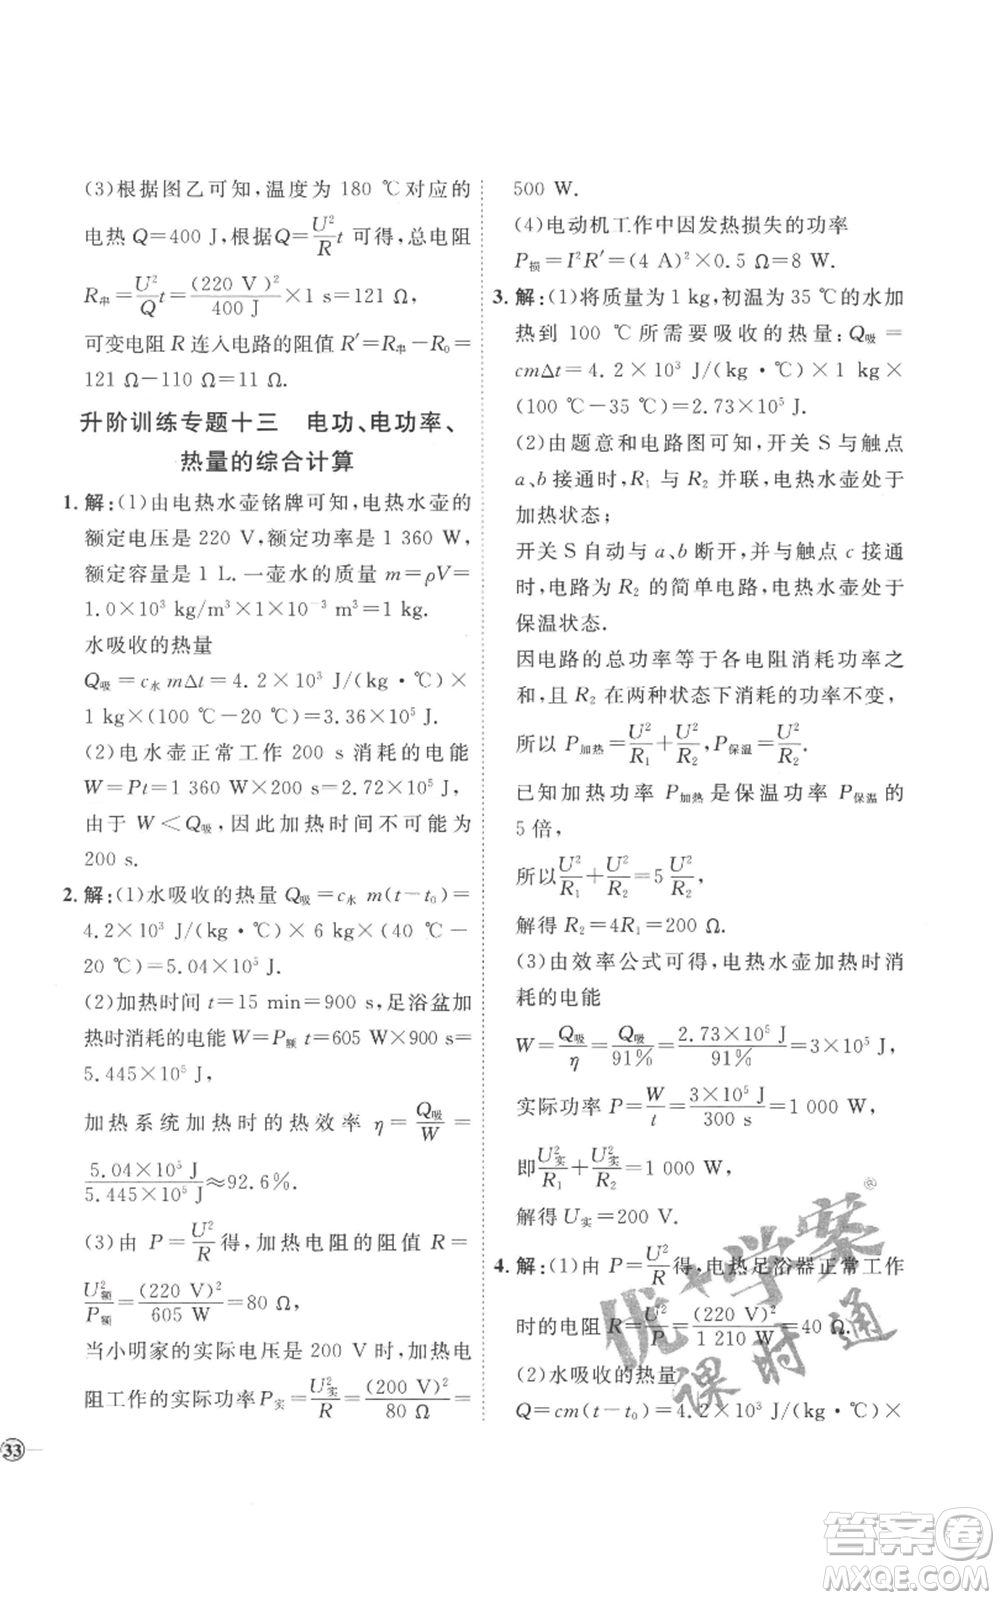 (3)根据图乙可知,温度为 180 ℃对应的
电热 Q=400 J,根据Q=U²/R t 可得,总电阻
R串=U²/Q t=(220 V)²/400 J×1 s=121 Ω,
可变电阻 R 连入电路的阻值 R′=R串−R₀=
121 Ω−110 Ω=11 Ω.
升阶训练专题十三 电功、电功率、
热量的综合计算
1. 解:(1)由电热水壶铭牌可知,电热水壶的
额定电压是 220 V,额定功率为 1 360 W,
额定容量是 1 L. 一壶水的质量 m=ρV=
1.0×10³ kg/m³×1×10⁻³ m³=1 kg.
水吸收的热量
Q吸=c水 mΔt=4.2×10³ J/(kg·℃)×
1 kg×(100 ℃−20 ℃)=3.36×10⁵ J.
(2)电水壶正常工作 200 s 消耗的电能
W=Pt=1 360 W×200 s=2.72×10⁵ J,
由于 W<Q吸,因此加热时间不可能为
200 s.
2. 解:(1)水吸收的热量 Q吸=c水 m(t−t₀)=
4.2×10³ J/(kg·℃)×6 kg×(40 ℃−
20 ℃)=5.04×10⁵ J.
(2)加热时间 t=15 min=900 s,足浴盆加
热时消耗的电能 W=P额t=605 W×900 s=
5.445×10⁵ J,
加热系统加热时的热效率 η=Q吸/W=
5.04×10⁵ J/5.445×10⁵ J≈92.6%.
(3)由 P=U²/R得,加热电阻的阻值 R=
U²额/P额=(220 V)²/605 W=80 Ω,
当小明家的实际电压是 200 V 时,加热电
阻工作的实际功率P实=U²实/R=(200 V)²/80 Ω=
33
500 W.
(4)电动机工作中因发热损失的功率
P损=I²R′=(4 A)²×0.5 Ω=8 W.
3. 解:(1)将质量为1 kg,初温为 35 ℃的水加
热到 100 ℃所需要吸收的热量:Q吸=
cmΔt=4.2×10³ J/(kg·℃)×1 kg×
(100 ℃−35 ℃)=2.73×10⁵ J.
(2)由题意和电路图可知,开关 S 与触点
a、b 接通时,R₁ 与 R₂ 并联,电热水壶处于
加热状态;
开关 S 自动与 a、b 断开,并与触点 c 接通
时,电路为 R₂ 的简单电路,电热水壶处于
保温状态.
因电路的总功率等于各电阻消耗功率之
和,且 R₂ 在两种状态下消耗的功率不变,
所以 P加热=U²/R₁+U²/R₂,P保温=U²/R₂.
已知加热功率 P加热是保温功率 P保温的
5 倍,
所以U²/R₁+U²/R₂=5 U²/R₂,
解得 R₂=4R₁=200 Ω.
(3)由效率公式可得,电热水壶加热时消
耗的电能
W=Q吸/η=Q吸/91%=2.73×10⁵ J/91%=3×10⁵ J,
实际功率 P=W/t=3×10⁵ J/300 s=1 000 W,
即U²实/R₁+U²实/R₂=1 000 W,
解得 U实=200 V.
4. 解:(1)由 P=U²/R得,电热足浴器正常工作
时的电阻 R=U²/P=(220 V)²/1 210 W=40 Ω.
(2)水吸收的热量
Q=cm(t−t₀)=4.2×10³ J/(kg·℃)×
优+学案
课时通
答案卷
MXQE.COM